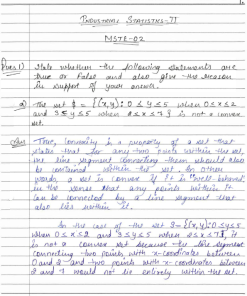 INDUSTRIAL STATISTICS-II
MSTE-02
Ques 1) State whether the following statements are
true or False and also give the reason
in support of your answer.
a) The set S = {(x,y): 0 ≤ y ≤ 5 when 0 ≤ x ≤ 2
and 3 ≤ y ≤ 5 when 2 ≤ x ≤ 7} is not a convex
set.
Ans True, Convexity is a property of a set that
states that for any two points within the set,
the line segment connecting them should also
be contained within the set. In other
words a set is convex if it is well behaved
in the sense that any points within it
can be connected by a line segment that
also lies within it.
In the case of the set S = {(x,y): 0 ≤ y ≤ 5
when 0 ≤ x ≤ 2 and 3 ≤ y ≤ 5 when 2 ≤ x ≤ 7}, it
is not a convex set because the line segment
connecting two points with x-coordinates between
0 and 2 and two points with x-coordinates between
2 and 7 would not lie entirely within the set.